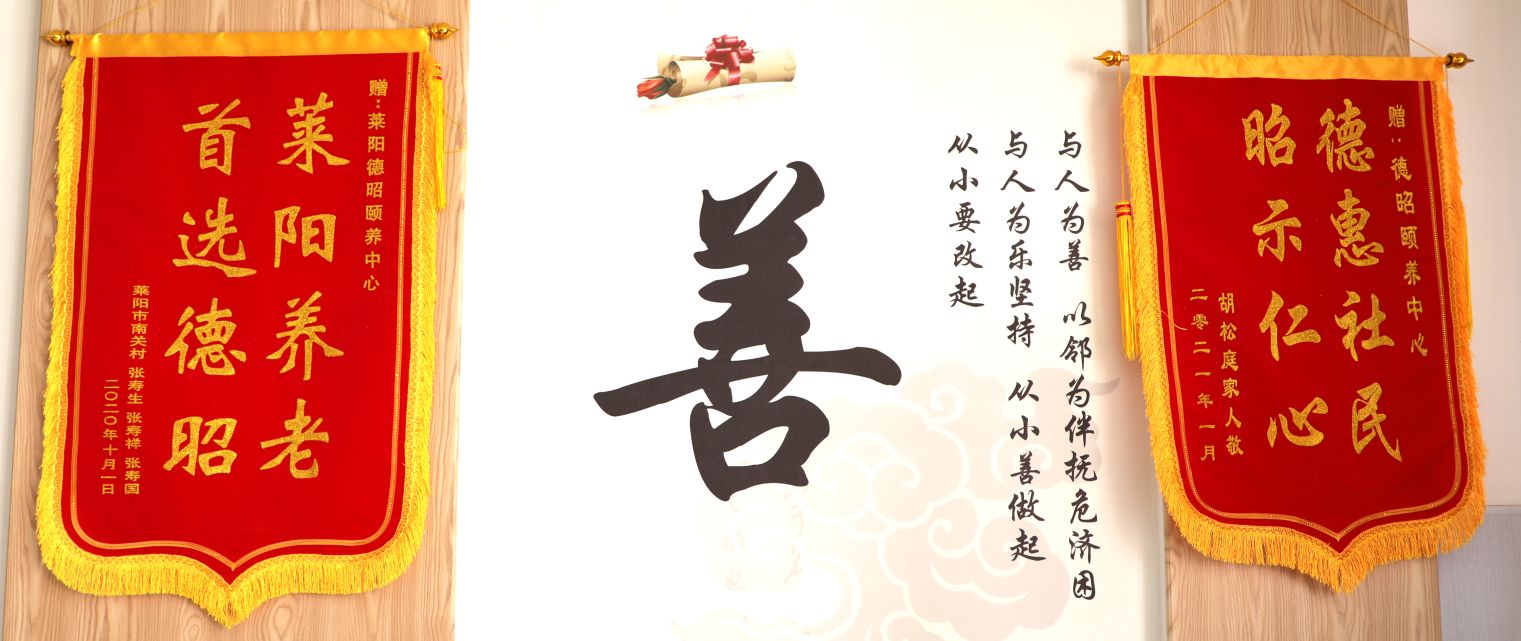 赠：莱阳德昭颐养中心
莱阳养老
首选德昭
莱阳市南关村 张寿生 张寿祥 张寿国
二〇二〇年十月一日
善
与人为善 以邻为伴抚危济困
与人为乐坚持 从小善做起
从小要改起
赠：德昭颐养中心
德惠社民
昭示仁心
胡松庭家人敬
二零二一年一月